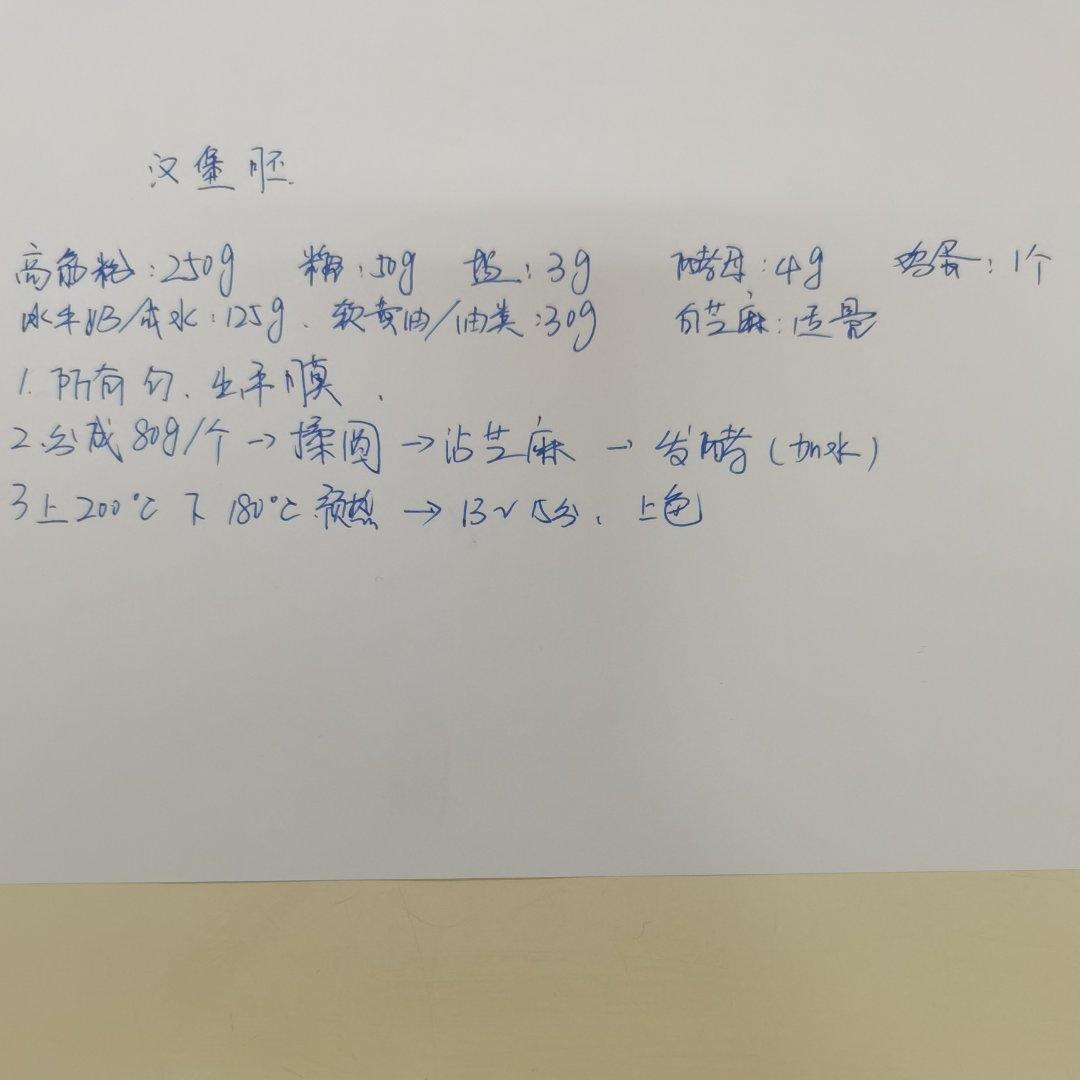 汉堡胚.
高筋粉:250g 糖:50g 盐:3g 酵母:4g 鸡蛋:1个
冰牛奶/或水:125g、软黄油/油类:30g 白芝麻:适量
1. 所有匀、出手膜、
2.分成80g/个→揉圆→沾芝麻→发酵(加水)
3上200℃ 下180℃预热→13~15分、上色